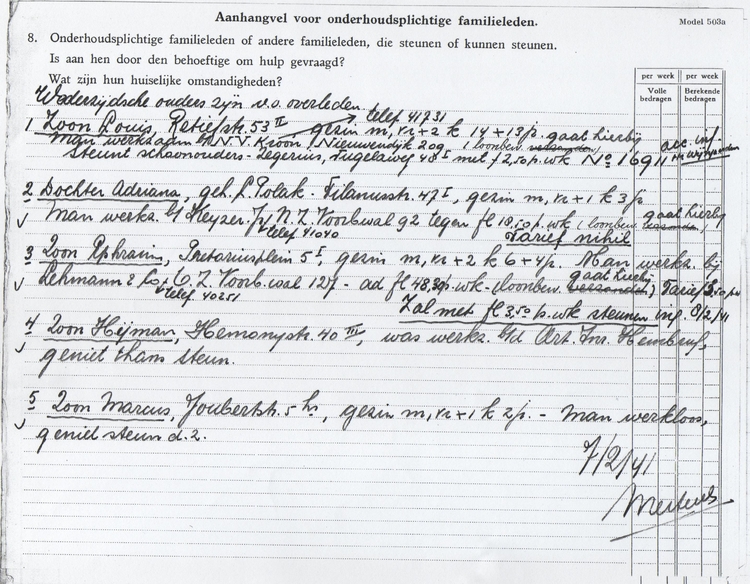 Aanhangvel voor onderhoudsplichtige familieleden.
Model 503a
8. Onderhoudsplichtige familieleden of andere familieleden, die steunen of kunnen steunen.
Is aan hen door den behoeftige om hulp gevraagd?
Wat zijn hun huiselijke omstandigheden?
per werk per week
Volle bedragen Berekende bedragen
Wederzijdsche ouders zijn v.o. overleden.
telef 41731
1 Zoon Louis, Retiefstr. 53 II gezin m, vr + 2 k 14 + 13 j. gaat hierbij
Man werkz. N.V. Kroon, Nieuwendijk 209 (loonbew.
steunt schoonouders - Segerius, 48 I met f 2,50 p. wk No 1691
2 Dochter Adriana, geh. L. Polak - Tilanusstr. 47 I, gezin m, vr + 1 k 3 j.
gaat hierbij
Man werkz. Keyzer N.Z. Voorb.wal 92 tegen fl 18,50 p. wk (loonbew.
telef 41040
Tarief nihil
3 Zoon Ephraim, Pretoriusplein 5 I, gezin m, vr + 2 k 6 + 4 j. Man werkz. bij
gaat hierbij
Lehmann & Co, O.Z. Voorb.wal 127 - ad fl 48,30 p. wk - (loonbew. Tarief
telef 40251
Zal met fl 3,50 p. wk steunen inf. 8/2/41
4 Zoon Heijman, Hemonystr. 40 III, was werkz. Art. Inr. Hembrug,
geniet thans steun.
5 Zoon Marcus, Joubertstr. 5 hs, gezin m, vr + 1 k 2 j. - Man werkloos,
geniet steun d. 2.
7/2/41